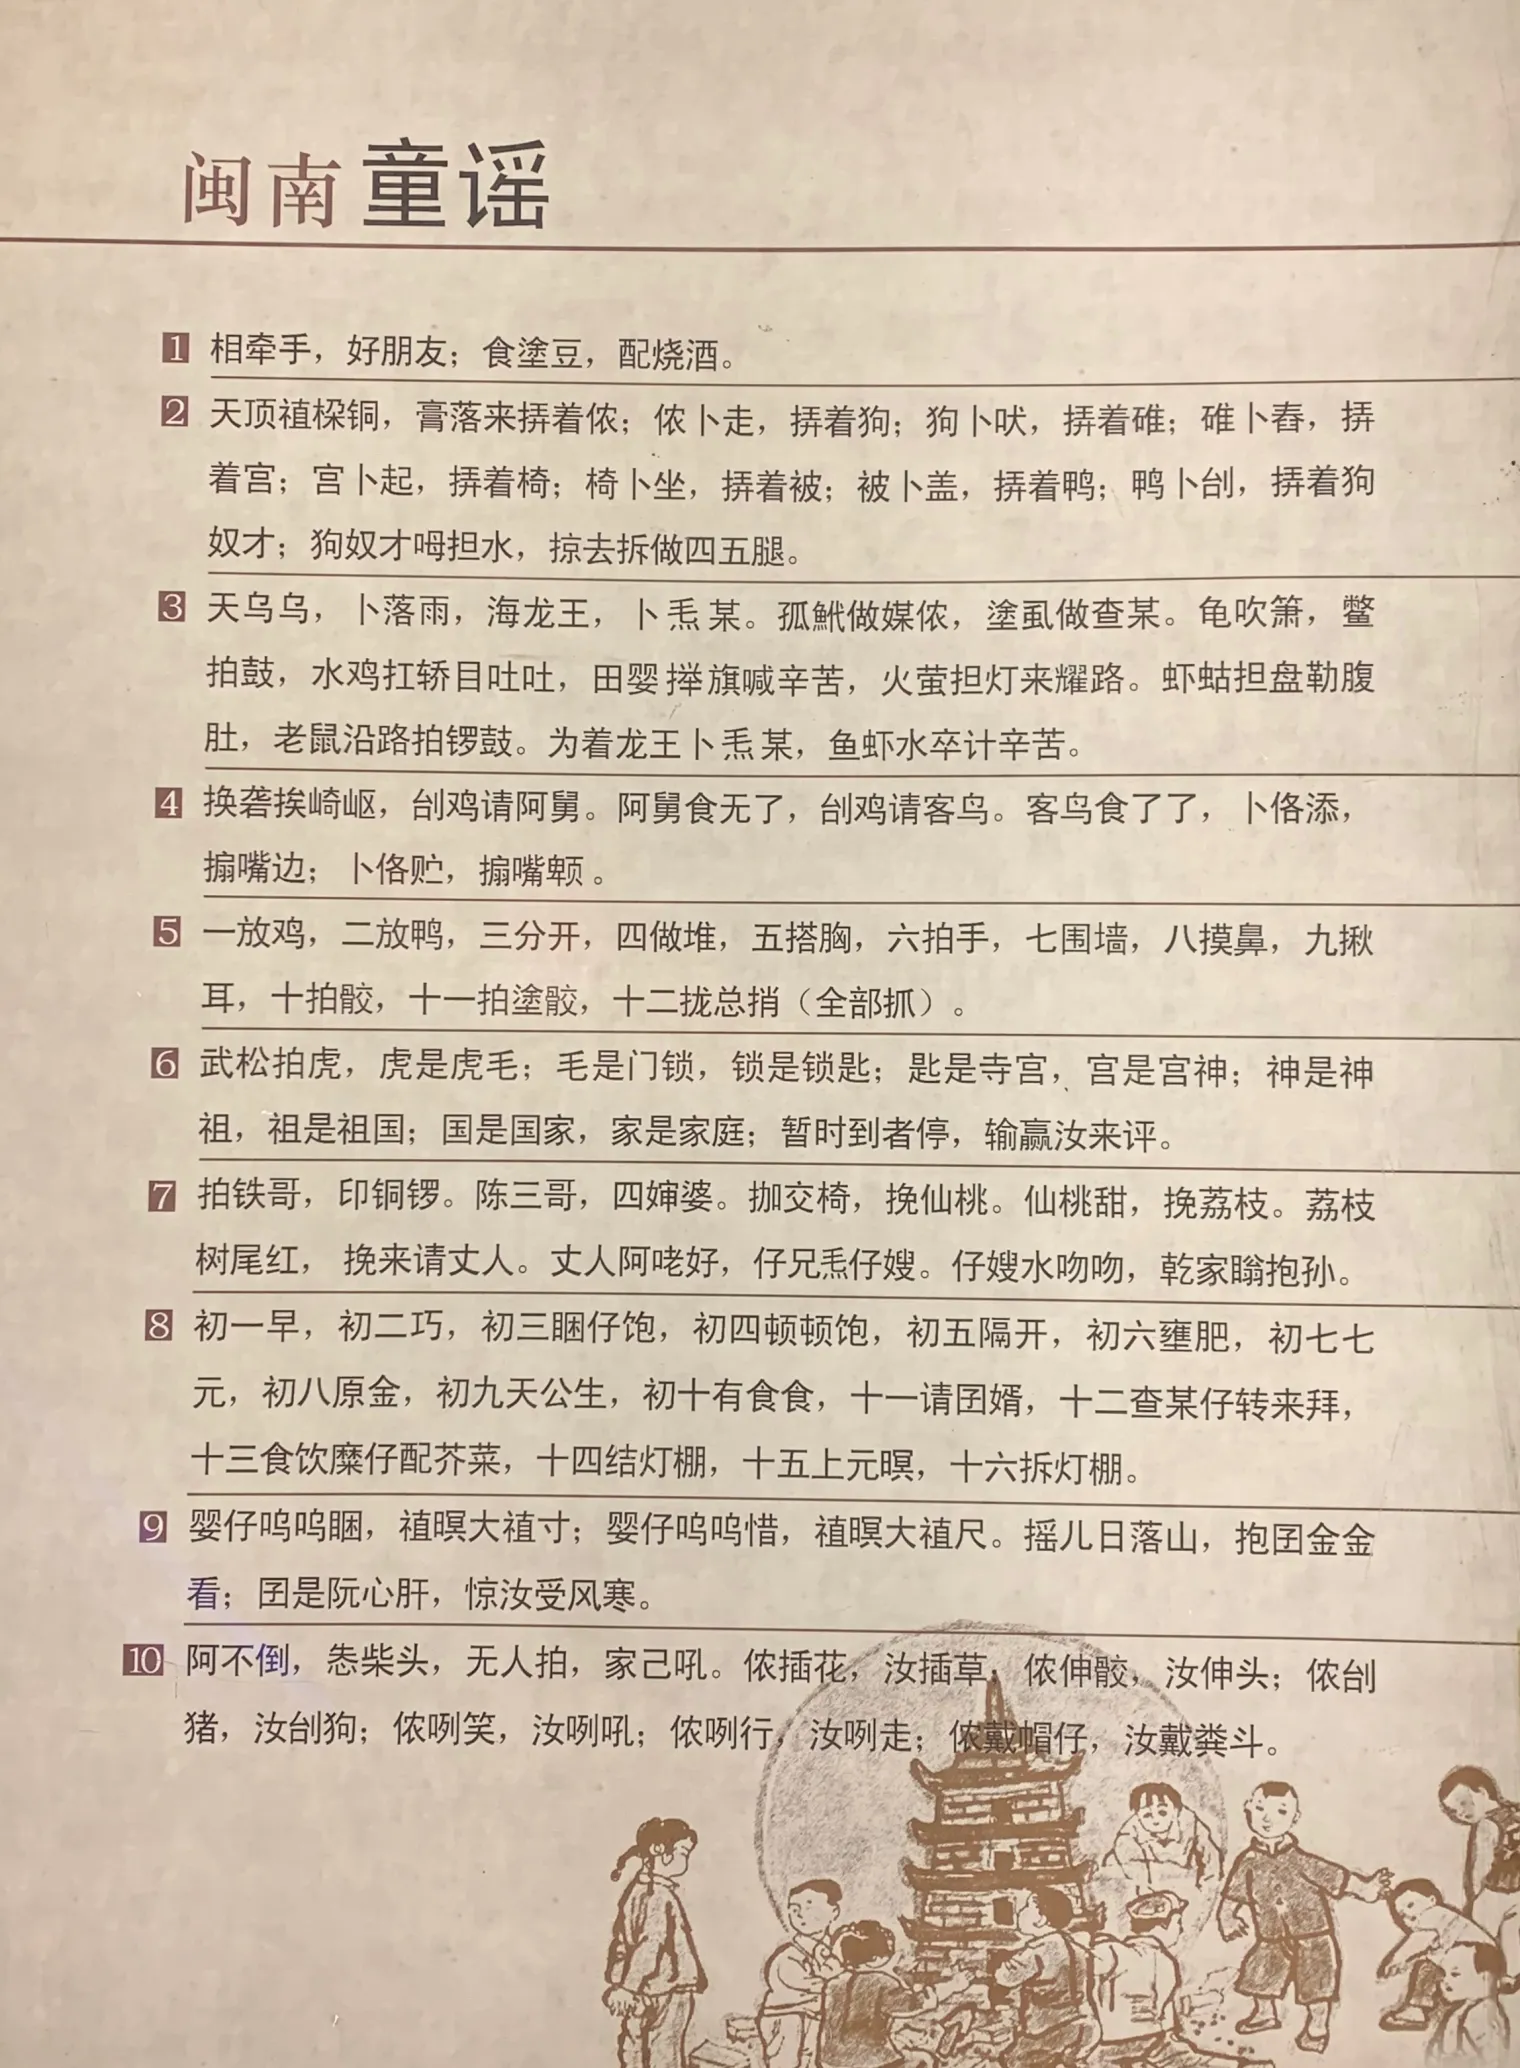 闽南童谣
1 相牵手，好朋友；食塗豆，配烧酒。
2 天顶禃樑铜，膏落来挵着侬；侬卜走，挵着狗；狗卜吠，挵着碓；碓卜舂，挵
着宫；宫卜起，挵着椅；椅卜坐，挵着被；被卜盖，挵着鸭；鸭卜刣，挵着狗
奴才；狗奴才呣担水，掠去拆做四五腿。
3 天乌乌，卜落雨，海龙王，卜𤆬某。孤鮘做媒侬，塗虱做查某。龟吹箫，鳖
拍鼓，水鸡扛轿目吐吐，田婴揅旗喊辛苦，火萤担灯来耀路。虾蛄担盘勒腹
肚，老鼠沿路拍锣鼓。为着龙王卜𤆬某，鱼虾水卒计辛苦。
4 换砻挨崎岖，刣鸡请阿舅。阿舅食无了，刣鸡请客鸟。客鸟食了了，卜佫添，
搧嘴边；卜佫贮，搧嘴𩑾。
5 一放鸡，二放鸭，三分开，四做堆，五搭胸，六拍手，七围墙，八摸鼻，九揪
耳，十拍骹，十一拍塗骹，十二拢总捎（全部抓）。
6 武松拍虎，虎是虎毛；毛是门锁，锁是锁匙；匙是寺宫，宫是宫神；神是神
祖，祖是祖国；国是国家，家是家庭；暂时到者停，输赢汝来评。
7 拍铁哥，印铜锣。陈三哥，四婶婆。抛交椅，挽仙桃。仙桃甜，挽荔枝。荔枝
树尾红，挽来请丈人。丈人阿咾好，仔兄𤆬仔嫂。仔嫂水吻吻，乾家瞈抱孙。
8 初一早，初二巧，初三睏仔饱，初四顿顿饱，初五隔开，初六壅肥，初七七
元，初八原金，初九天公生，初十有食食，十一请囝婿，十二查某仔转来拜，
十三食饮糜仔配芥菜，十四结灯棚，十五上元暝，十六拆灯棚。
9 婴仔呜呜睏，禃暝大禃寸；婴仔呜呜惜，禃暝大禃尺。摇儿日落山，抱囝金金
看；囝是阮心肝，惊汝受风寒。
10 阿不倒，恙柴头，无人拍，家己吼。侬插花，汝插草；侬伸骹，汝伸头；侬刣
猪，汝刣狗；侬咧笑，汝咧吼；侬咧行，汝咧走；侬戴帽仔，汝戴粪斗。